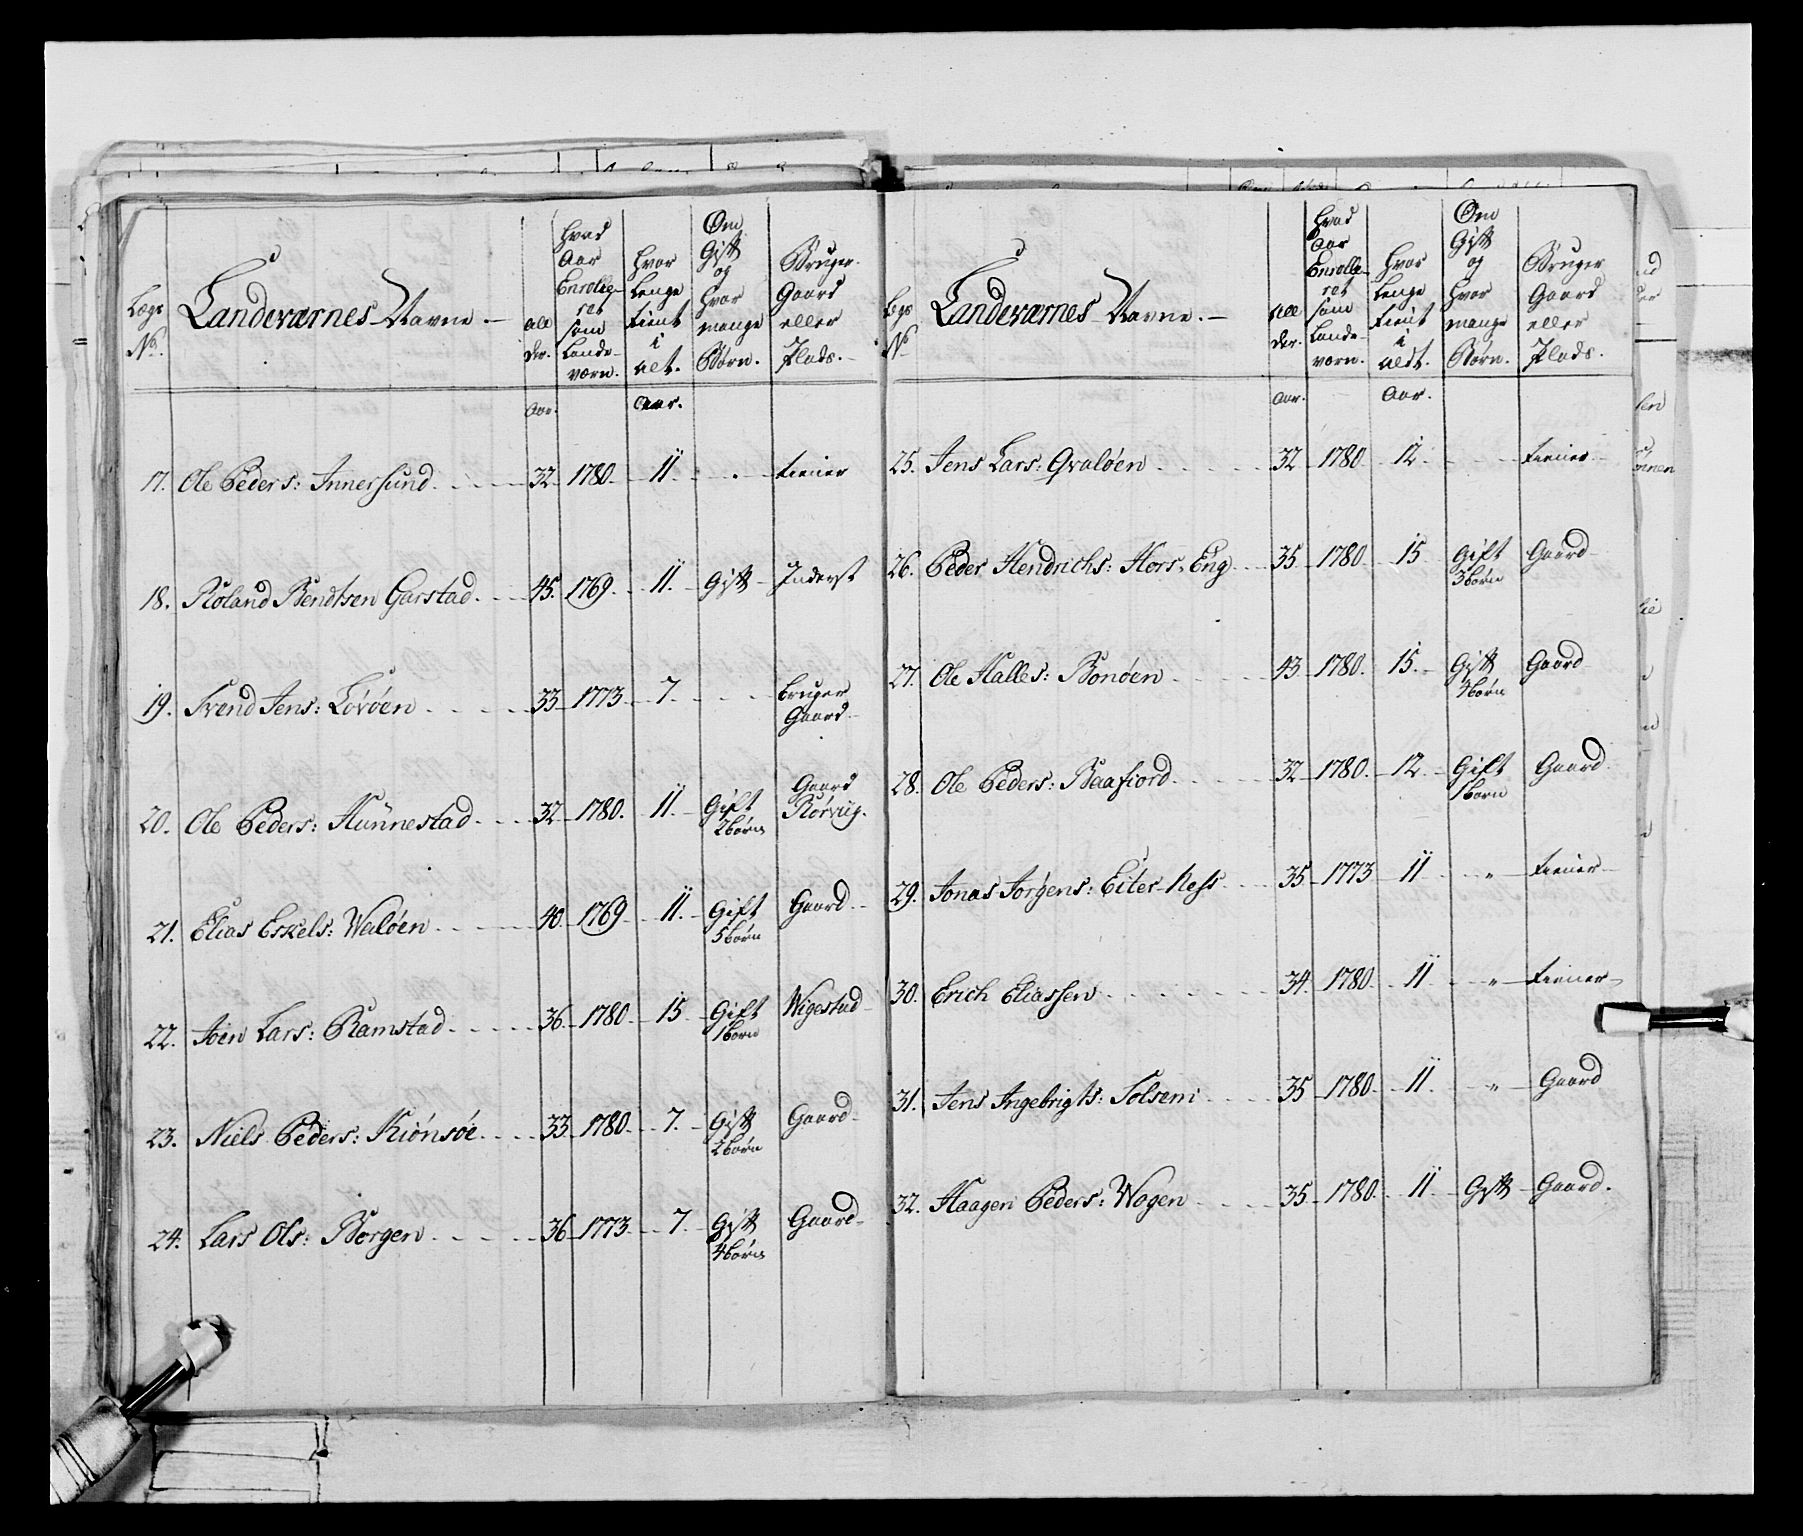 Lægs No. Landeværnes Navne.– Al der. Hvad Aar Enrolle- ret som Lande- værn. Hvor Lenge tient i alt. Om Gift og hvor mange Børn. Bruger Gaard eller Plads.
Aar. Aar.
17. Ole Peders: Innersund 32 1780 11 tiener
18. Roland Bendtsen Garstad 45 1769 11 Gift Inderst
19. Svend Jens: Løvøen 33 1773 7 bruger Gaard
20. Ole Peders: Hunnestad 32 1780 11 Gift 2 børn Gaard Rørvig.
21. Elias Eskels: Waløen 40 1769 11 Gift 5 børn Gaard
22. Joen Lars: Ramstad 36 1780 15 Gift 1 børn Wigestad
23. Niels Peders: Kiønsøe 33 1780 7 Gift 2 børn Gaard
24. Lars Ols: Borgen 36 1773 7 Gift 4 børn Gaard
Lægs No. Landeværnes Navne.– All der. Hvad Aar Enrolle- ret som Lande- værn. Hvor Lenge tient i aldt. Om Gift og hvor mange Børn. Bruger Gaard eller Plads.
Aar. Aar.
25. Jens Lars: Qvaløen 32 1780 12 tiener
26. Peder Hendrichs: Hors. Eng 35 1780 15 Gift 3 børn Gaard
27. Ole Halles: Bonøen 43 1780 15 Gift 4 børn Gaard
28. Ole Peders: Raafiord 32 1780 12 Gift 1 børn Gaard
29. Jonas Jørgens: Eiter-Ness 35 1773 11 „ tiener
30. Erich Eliassen 34 1780 11 „ tiener
31. Jens Ingebrigts: Solsem 35 1780 11 „ Gaard
32. Haagen Peders: Wogen 35 1780 11 Gift Gaard.